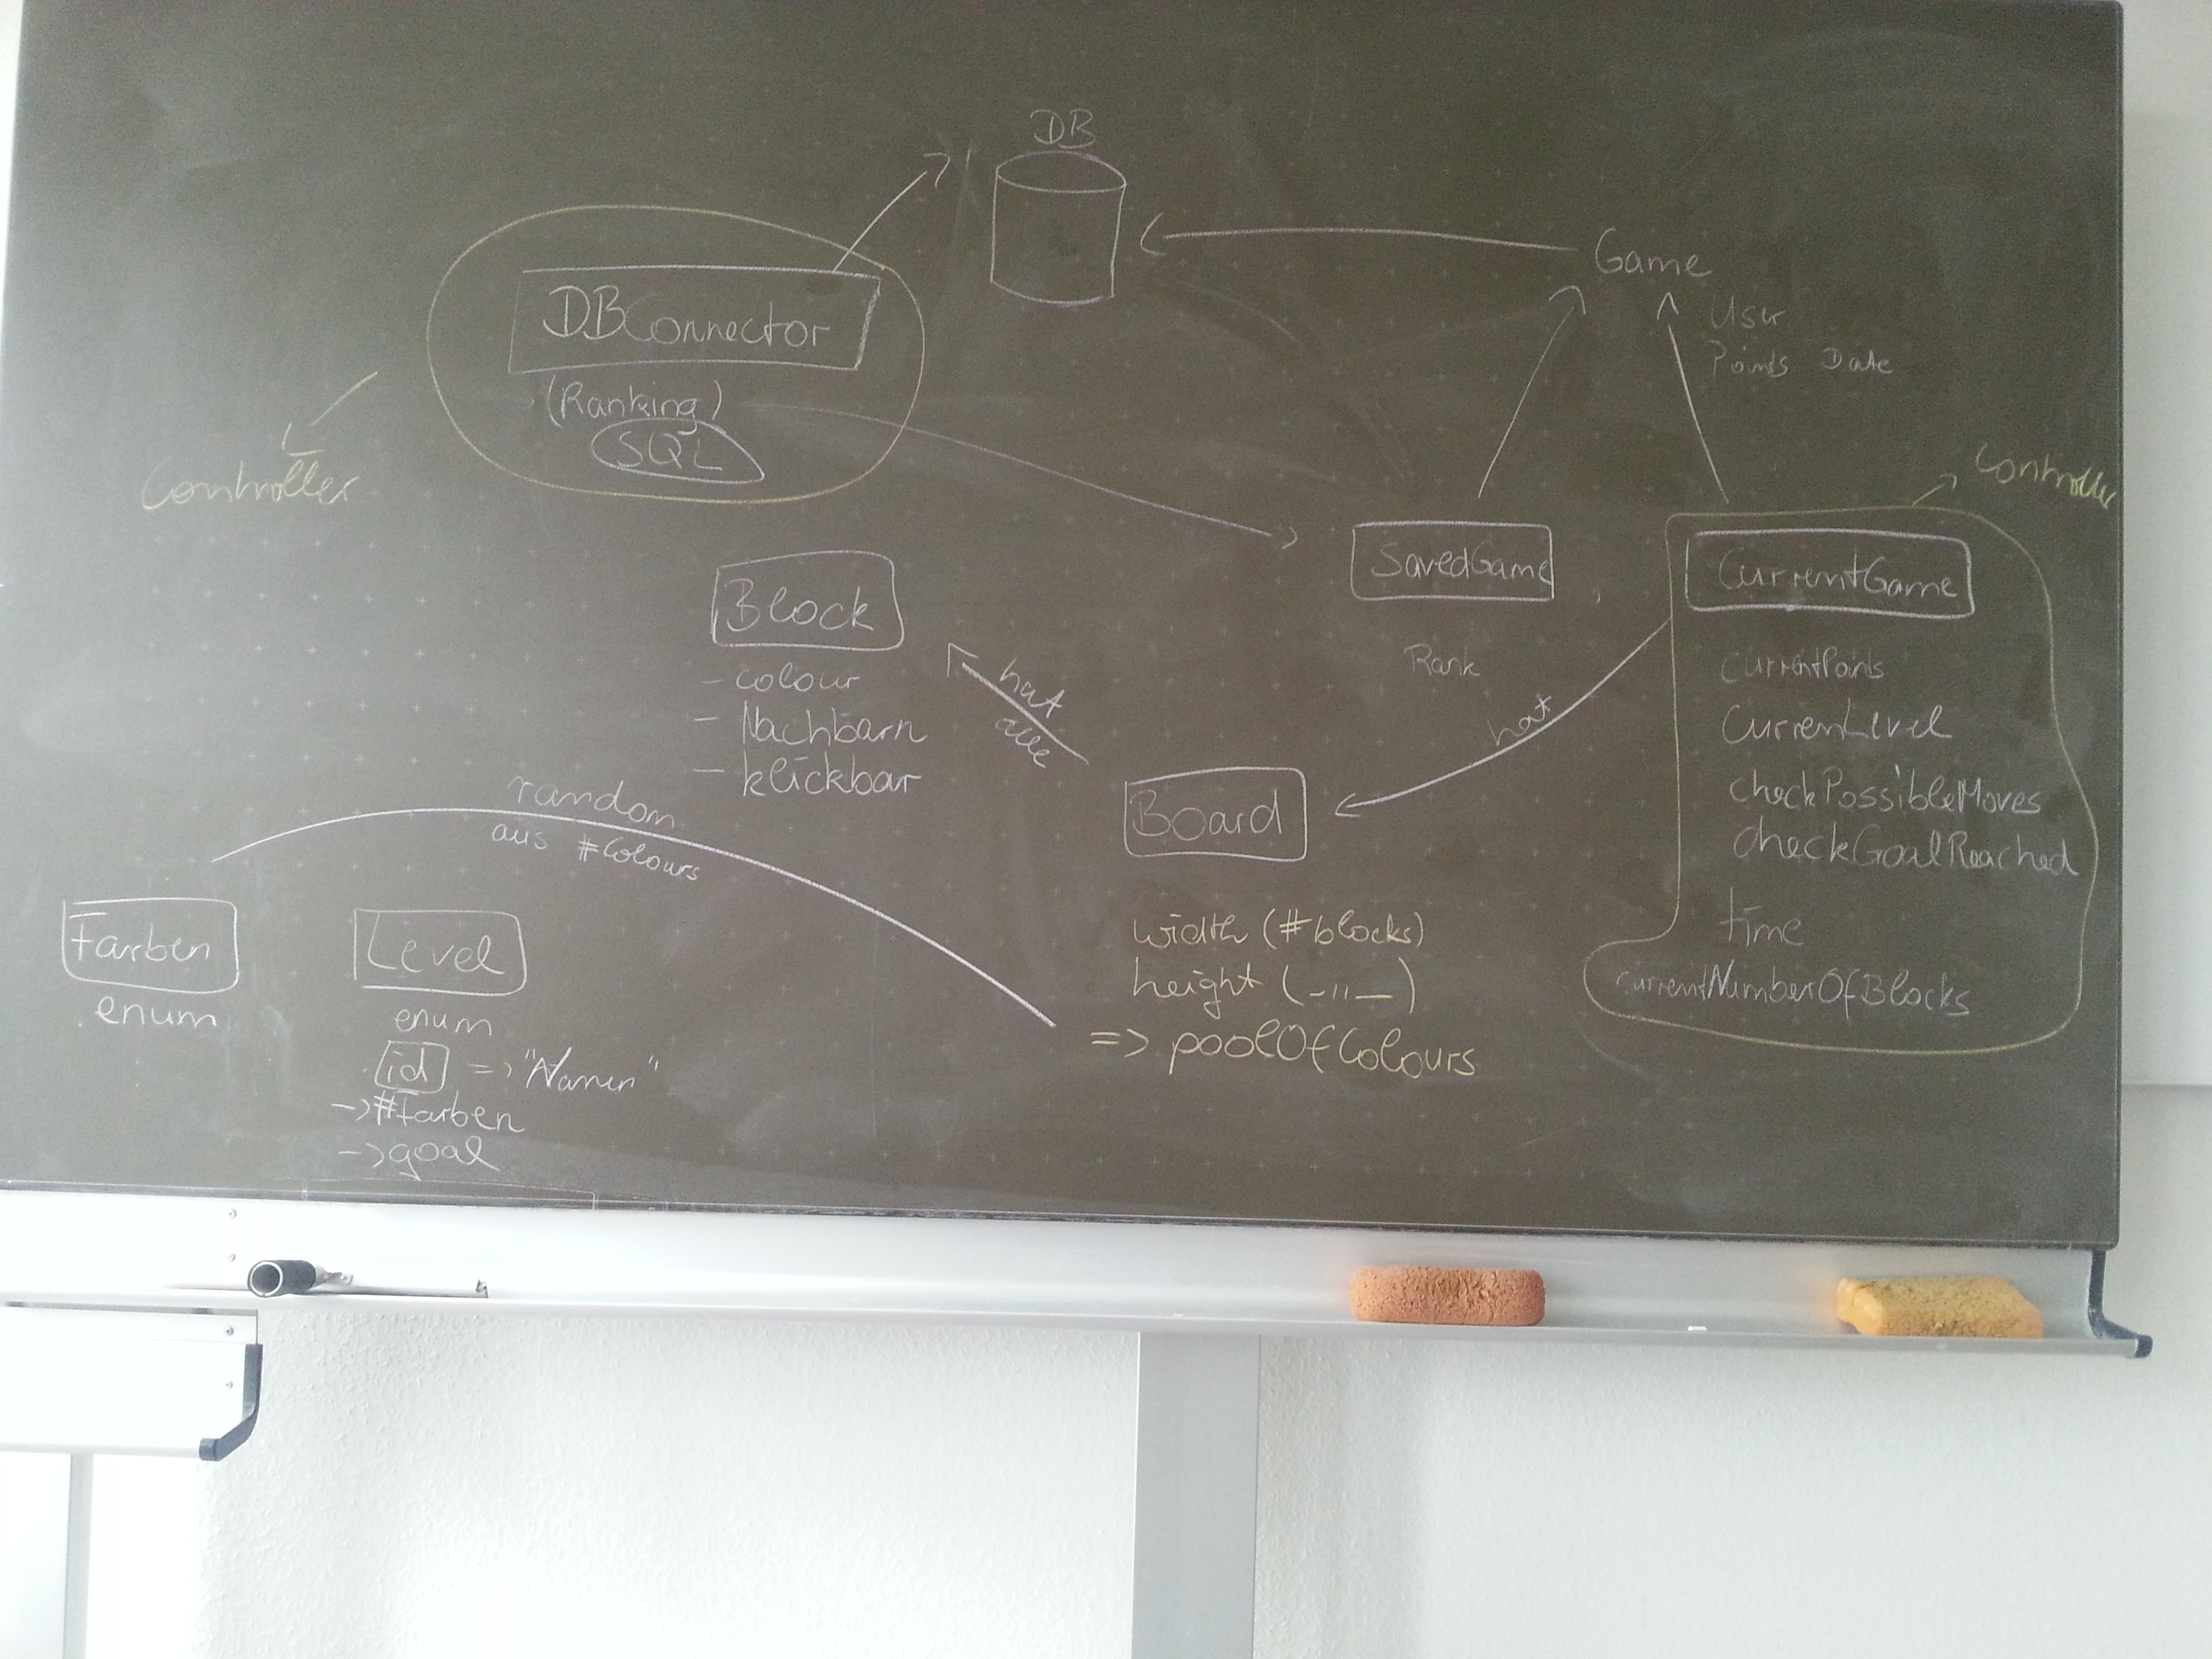 DB
Game
User
Points Date
DBConnector
(Ranking)
SQL
Controller
Controller
SavedGame
Rank
CurrentGame
currentPoints
CurrenLevel
checkPossibleMoves
checkGoalReached
time
currentNumberOfBlocks
Block
- colour
- Nachbarn
- klickbar
hat
alle
hat
Board
width (#blocks)
height (-"-)
=> poolOfColours
random
aus #Colours
Farben
enum
Level
enum
id => "Namen"
-> #Farben
-> goal